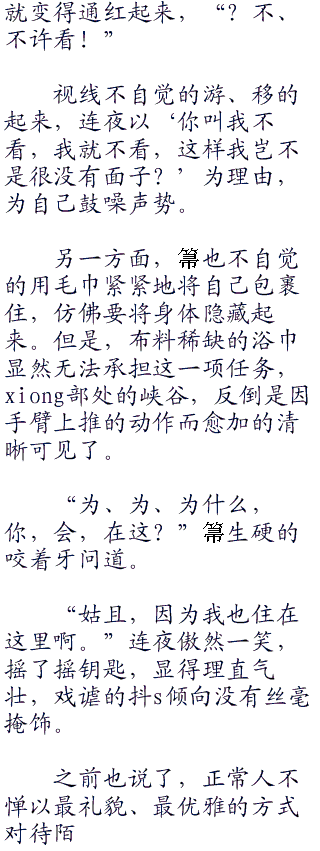 就变得通红起来，“？不、
不许看！”
视线不自觉的游、移的
起来，连夜以‘你叫我不
看，我就不看，这样我岂不
是很没有面子？’为理由，
为自己鼓噪声势。
另一方面，箒也不自觉
的用毛巾紧紧地将自己包裹
住，仿佛要将身体隐藏起
来。但是，布料稀缺的浴巾
显然无法承担这一项任务，
xiong部处的峡谷，反倒是因
手臂上推的动作而愈加的清
晰可见了。
“为、为、为什么，
你，会，在这？”箒生硬的
咬着牙问道。
“姑且，因为我也住在
这里啊。”连夜傲然一笑，
摇了摇钥匙，显得理直气
壮，戏谑的抖s倾向没有丝毫
掩饰。
之前也说了，正常人不
惮以最礼貌、最优雅的方式
对待陌